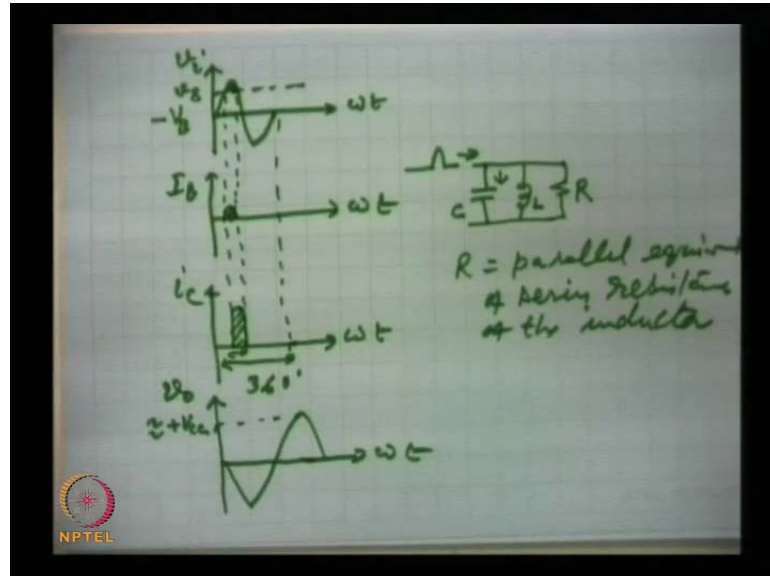 v_i
v_B
-V_B
ωt
I_B
ωt
i_c
ωt
360°
v_o
≈+V_cc
ωt
C
L
R
R = parallel
of series resistance
of the inductor
NPTEL